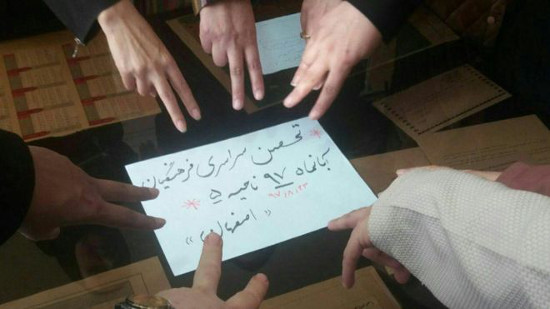 تحصن سراسری فرهنگیان
آبانماه ۹۷ ناحیه ۵
۹۷/۸/۲۳
«اصفهان»